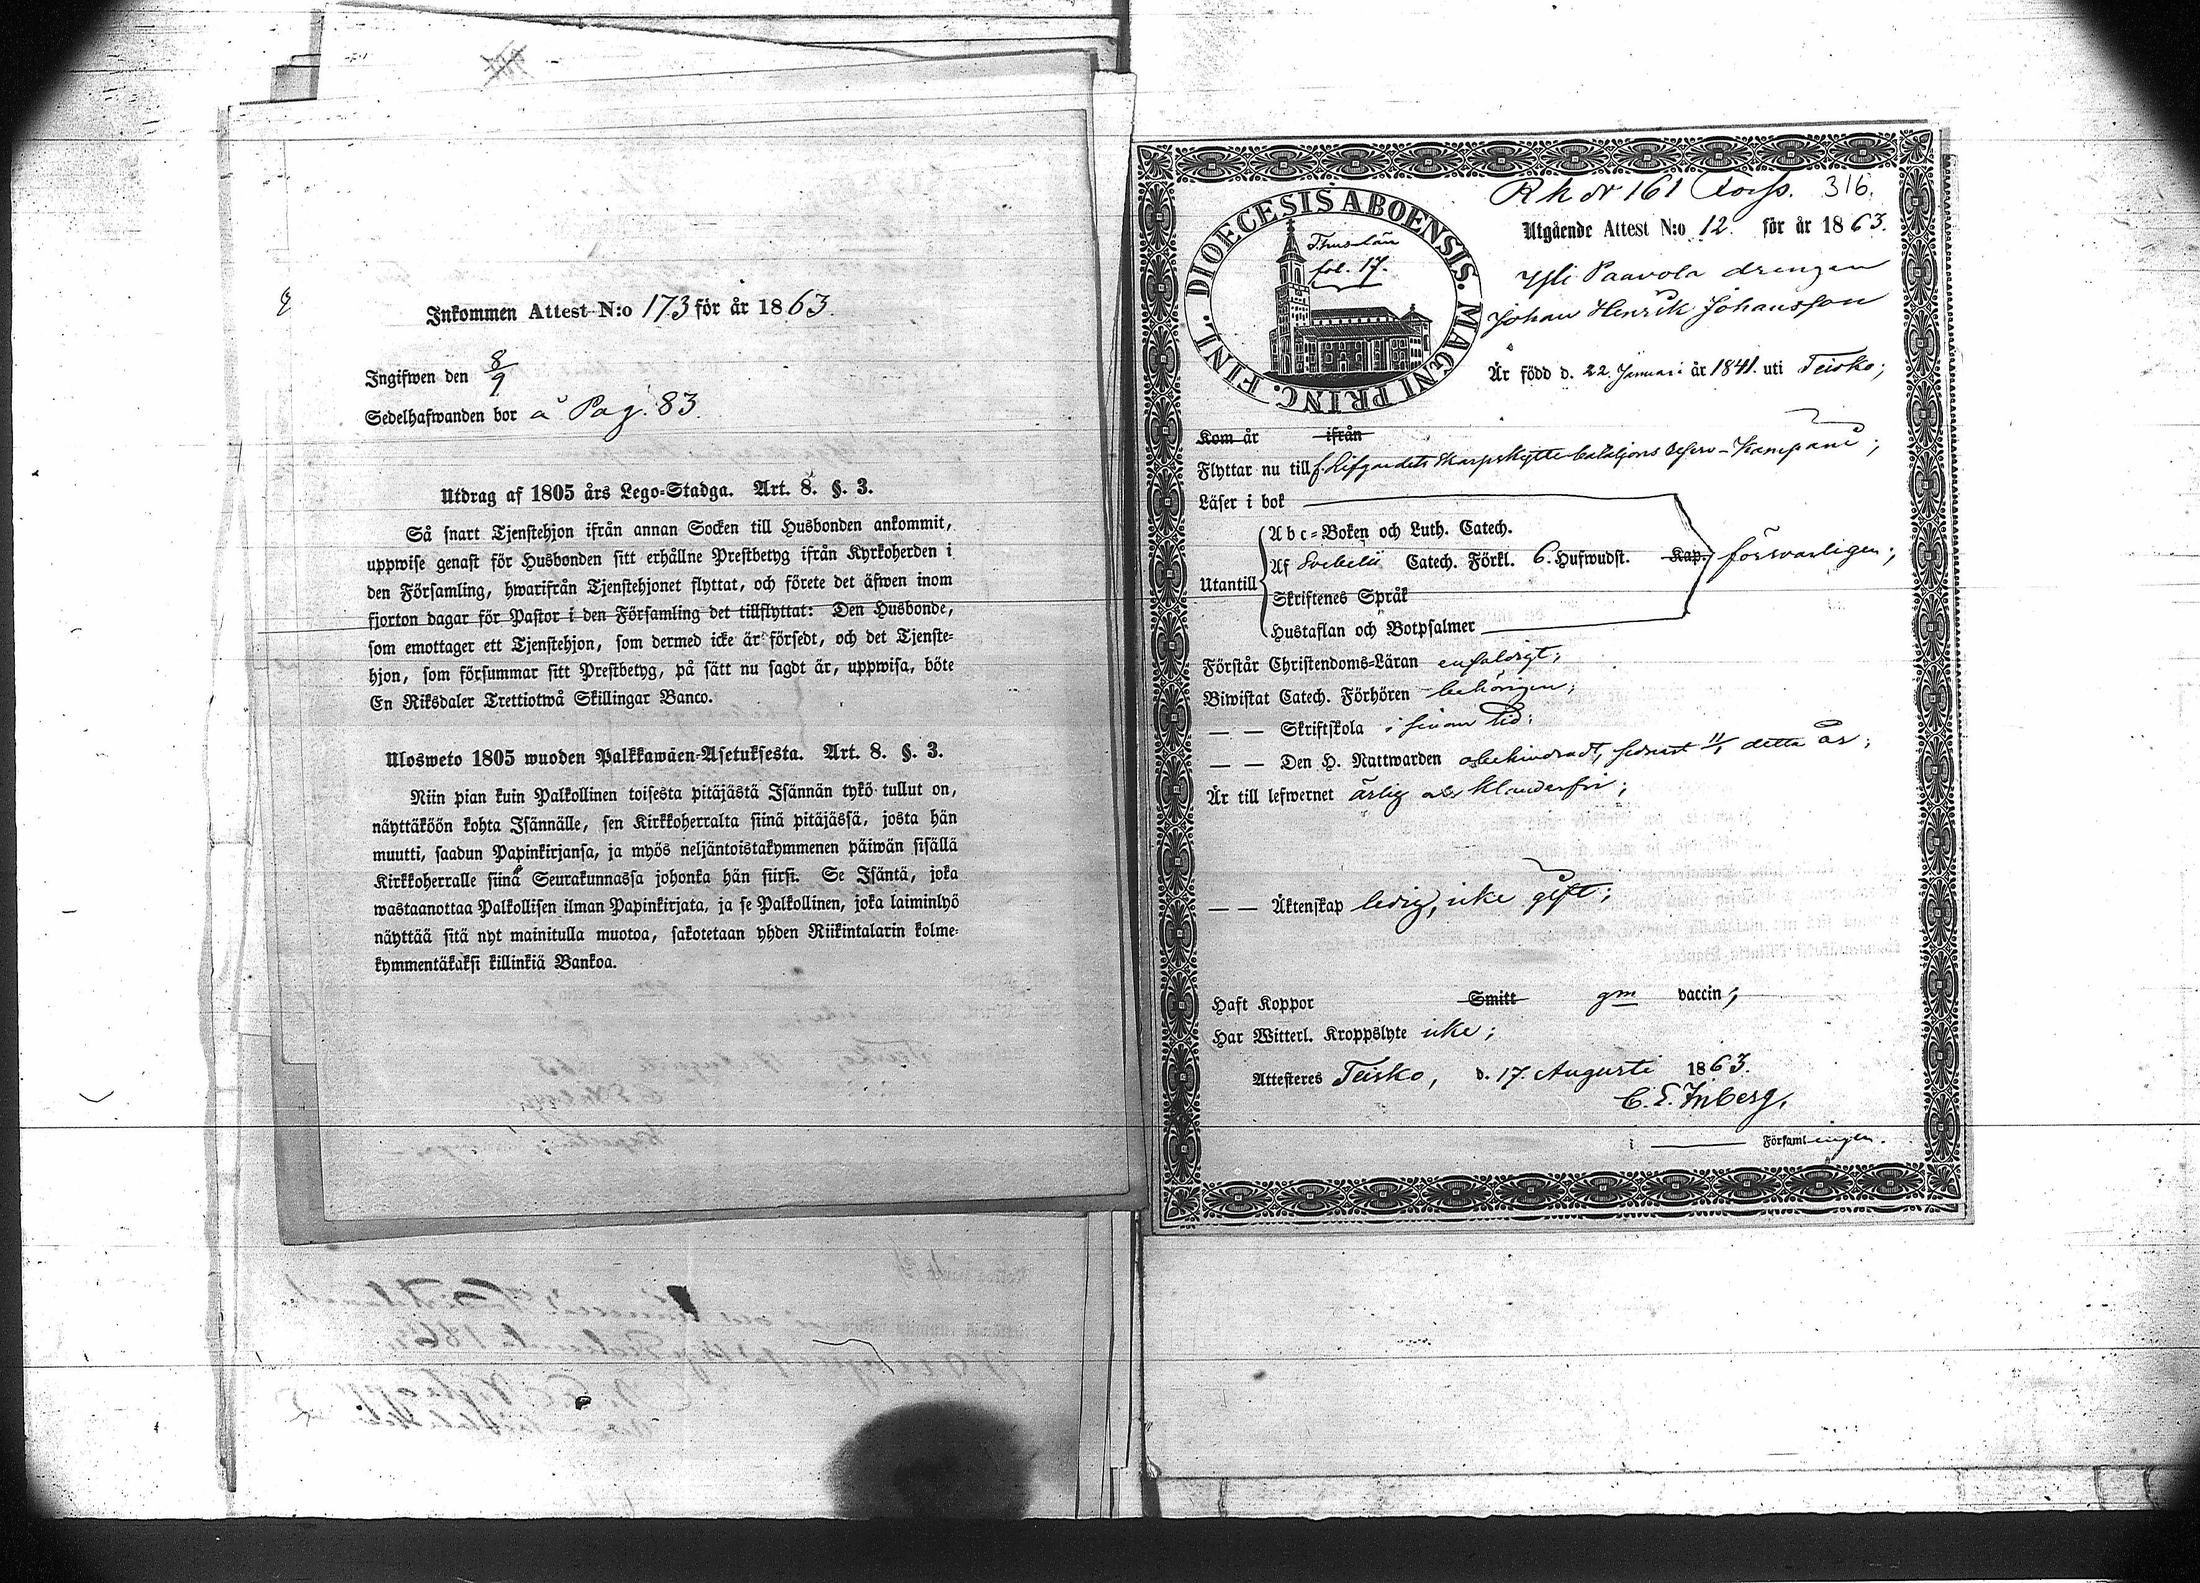 Inkommen Attest N:o 173 för år 1863.
Ingifwen den 8/9
Sedelhafwanden bor å Pag. 83.
Utdrag af 1805 års Lego-Stadga. Art. 8. §. 3.
Så snart Tjenstehjon ifrån annan Socken till Husbonden ankommit,
uppwise genast för Husbonden sitt erhållne Prestbetyg ifrån Kyrkoherden i
den Församling, hwarifrån Tjenstehjonet flyttat, och förete det äfwen inom
fjorton dagar för Pastor i den Församling det tillflyttat: Den Husbonde,
som emottager ett Tjenstehjon, som dermed icke är försedt, och det Tjenste-
hjon, som försummar sitt Prestbetyg, på sätt nu sagdt är, uppwisa, böte
En Riksdaler Trettiotwå Skillingar Banco.
Ulosweto 1805 wuoden Palkkawäen-Asetuksesta. Art. 8. §. 3.
Niin pian kuin Palkollinen toisesta pitäjästä Isännän tykö tullut on,
näyttäköön kohta Isännälle, sen Kirkkoherralta siinä pitäjässä, josta hän
muutti, saadun Papinkirjansa, ja myös neljäntoistakymmenen päiwän sisällä
Kirkkoherralle siinä Seurakunnassa johonka hän siirsi. Se Isäntä, joka
wastaanottaa Palkollisen ilman Papinkirjata, ja se Palkollinen, joka laiminlyö
näyttää sitä nyt mainitulla muotoa, sakotetaan yhden Riikintalarin kolme-
kymmentäkaksi killinkiä Bankoa.
DIOECESIS ABOENSIS. MAGNI PRINC. FINL.
fol. 17.
Rh N 161 316.
Utgående Attest N:o 12. för år 1863.
Yli Paavola drengen
Johan Henrik Johansson
Är född d. 22 Januari år 1841. uti Teisko;
Kom år ifrån
Flyttar nu till f. Lifgardets Skarpskytte bataljons Reserv-Kompani;
Läser i bok
Abc-Boken och Luth. Catech.
Utantill Af Svebelii Catech. Förkl. 6. Hufwudst. Kap. försvarligen;
Skriftenes Språk
Hustaflan och Botpsalmer
Förstår Christendoms-Läran enfaldigt;
Biwistat Catech. Förhören behörigen;
— — Skriftskola i sinom tid;
— — Den H. Nattwarden obehindradt, sednast 11/1 detta år;
Är till lefwernet ärlig och klanderfri;
— — Äktenskap ledig, icke gift;
Haft Koppor Smitt gm vaccin;
Har Witterl. Kroppslyte icke;
Attesteres Teisko, d. 17. Augusti 1863.
C. E. Inberg,
i — Församlingen.